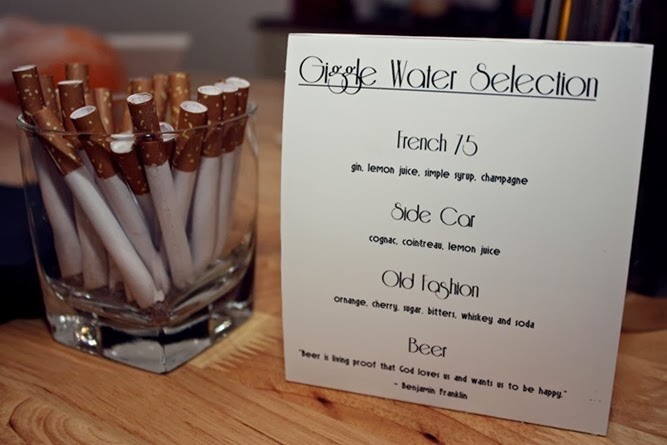 Giggle Water Selection
French 75
gin, lemon juice, simple syrup, champagne
Side Car
cognac, cointreau, lemon juice
Old Fashion
ornange, cherry, sugar, bitters, whiskey and soda
Beer
"Beer is living proof that God loves us and wants us to be happy."
~ Benjamin Franklin